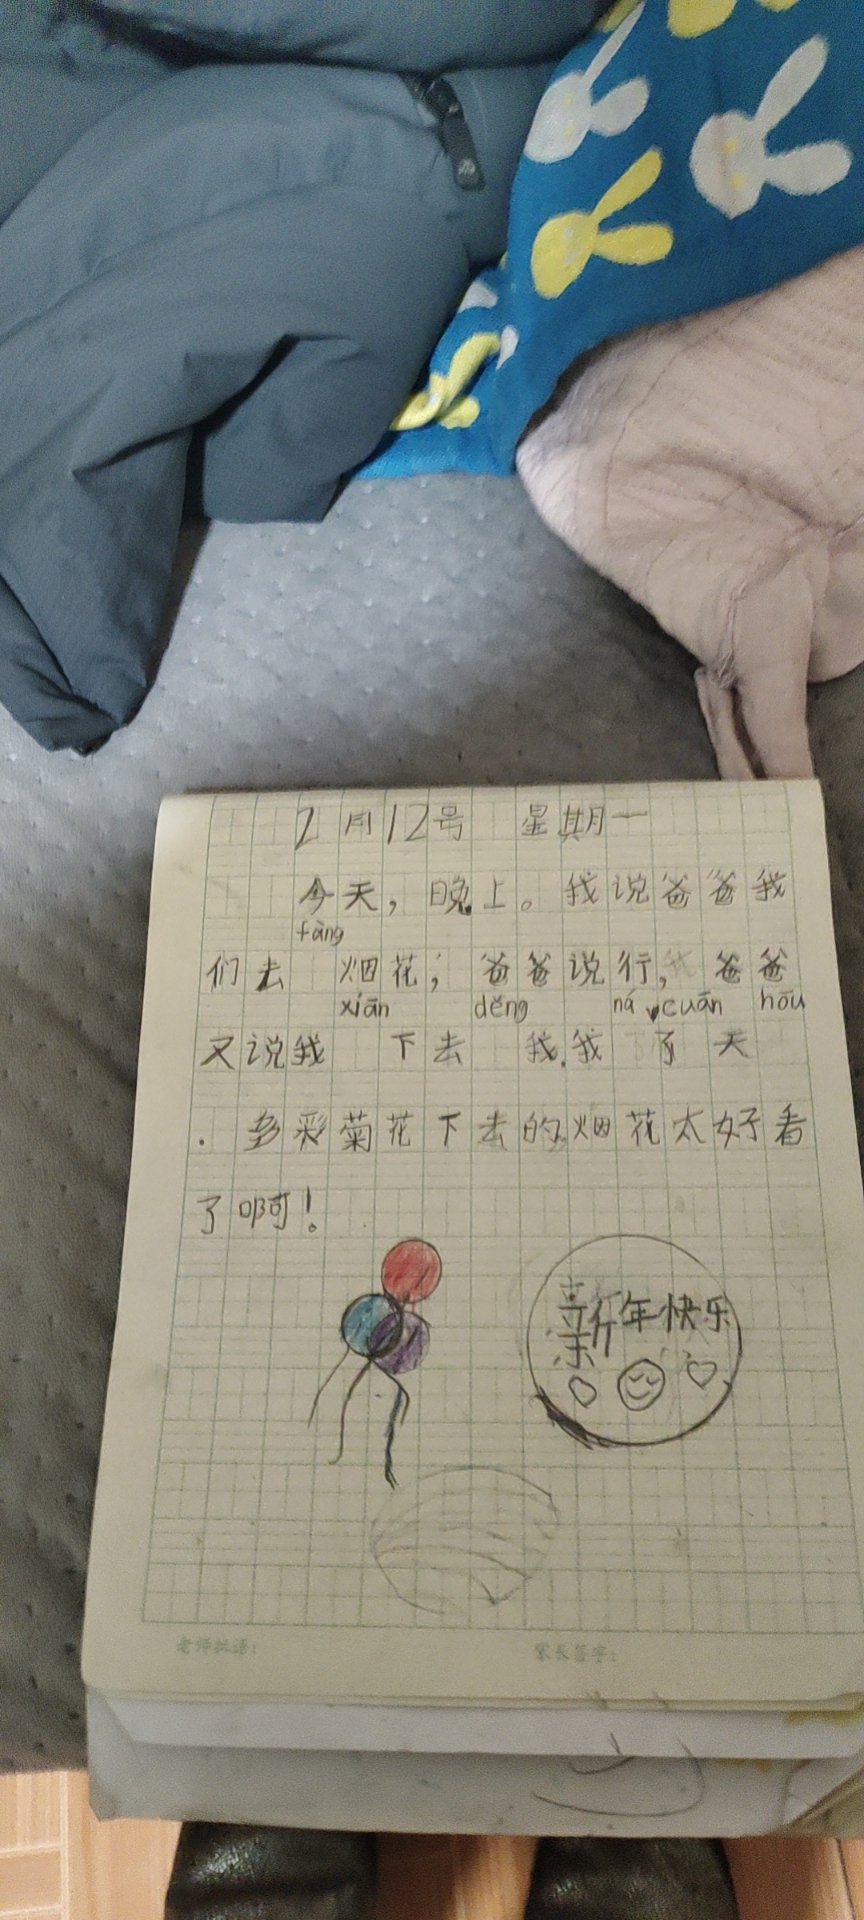 2月12号 星期一
今天，晚上。我说爸爸我
fàng
们去 烟花，爸爸说行，我 爸爸
xiān děng ná cuān hōu
又说我 下去 我.我 了 天
. 多彩菊花下去的烟花太好看
了啊！
新年快乐
老师批语： 家长签字：